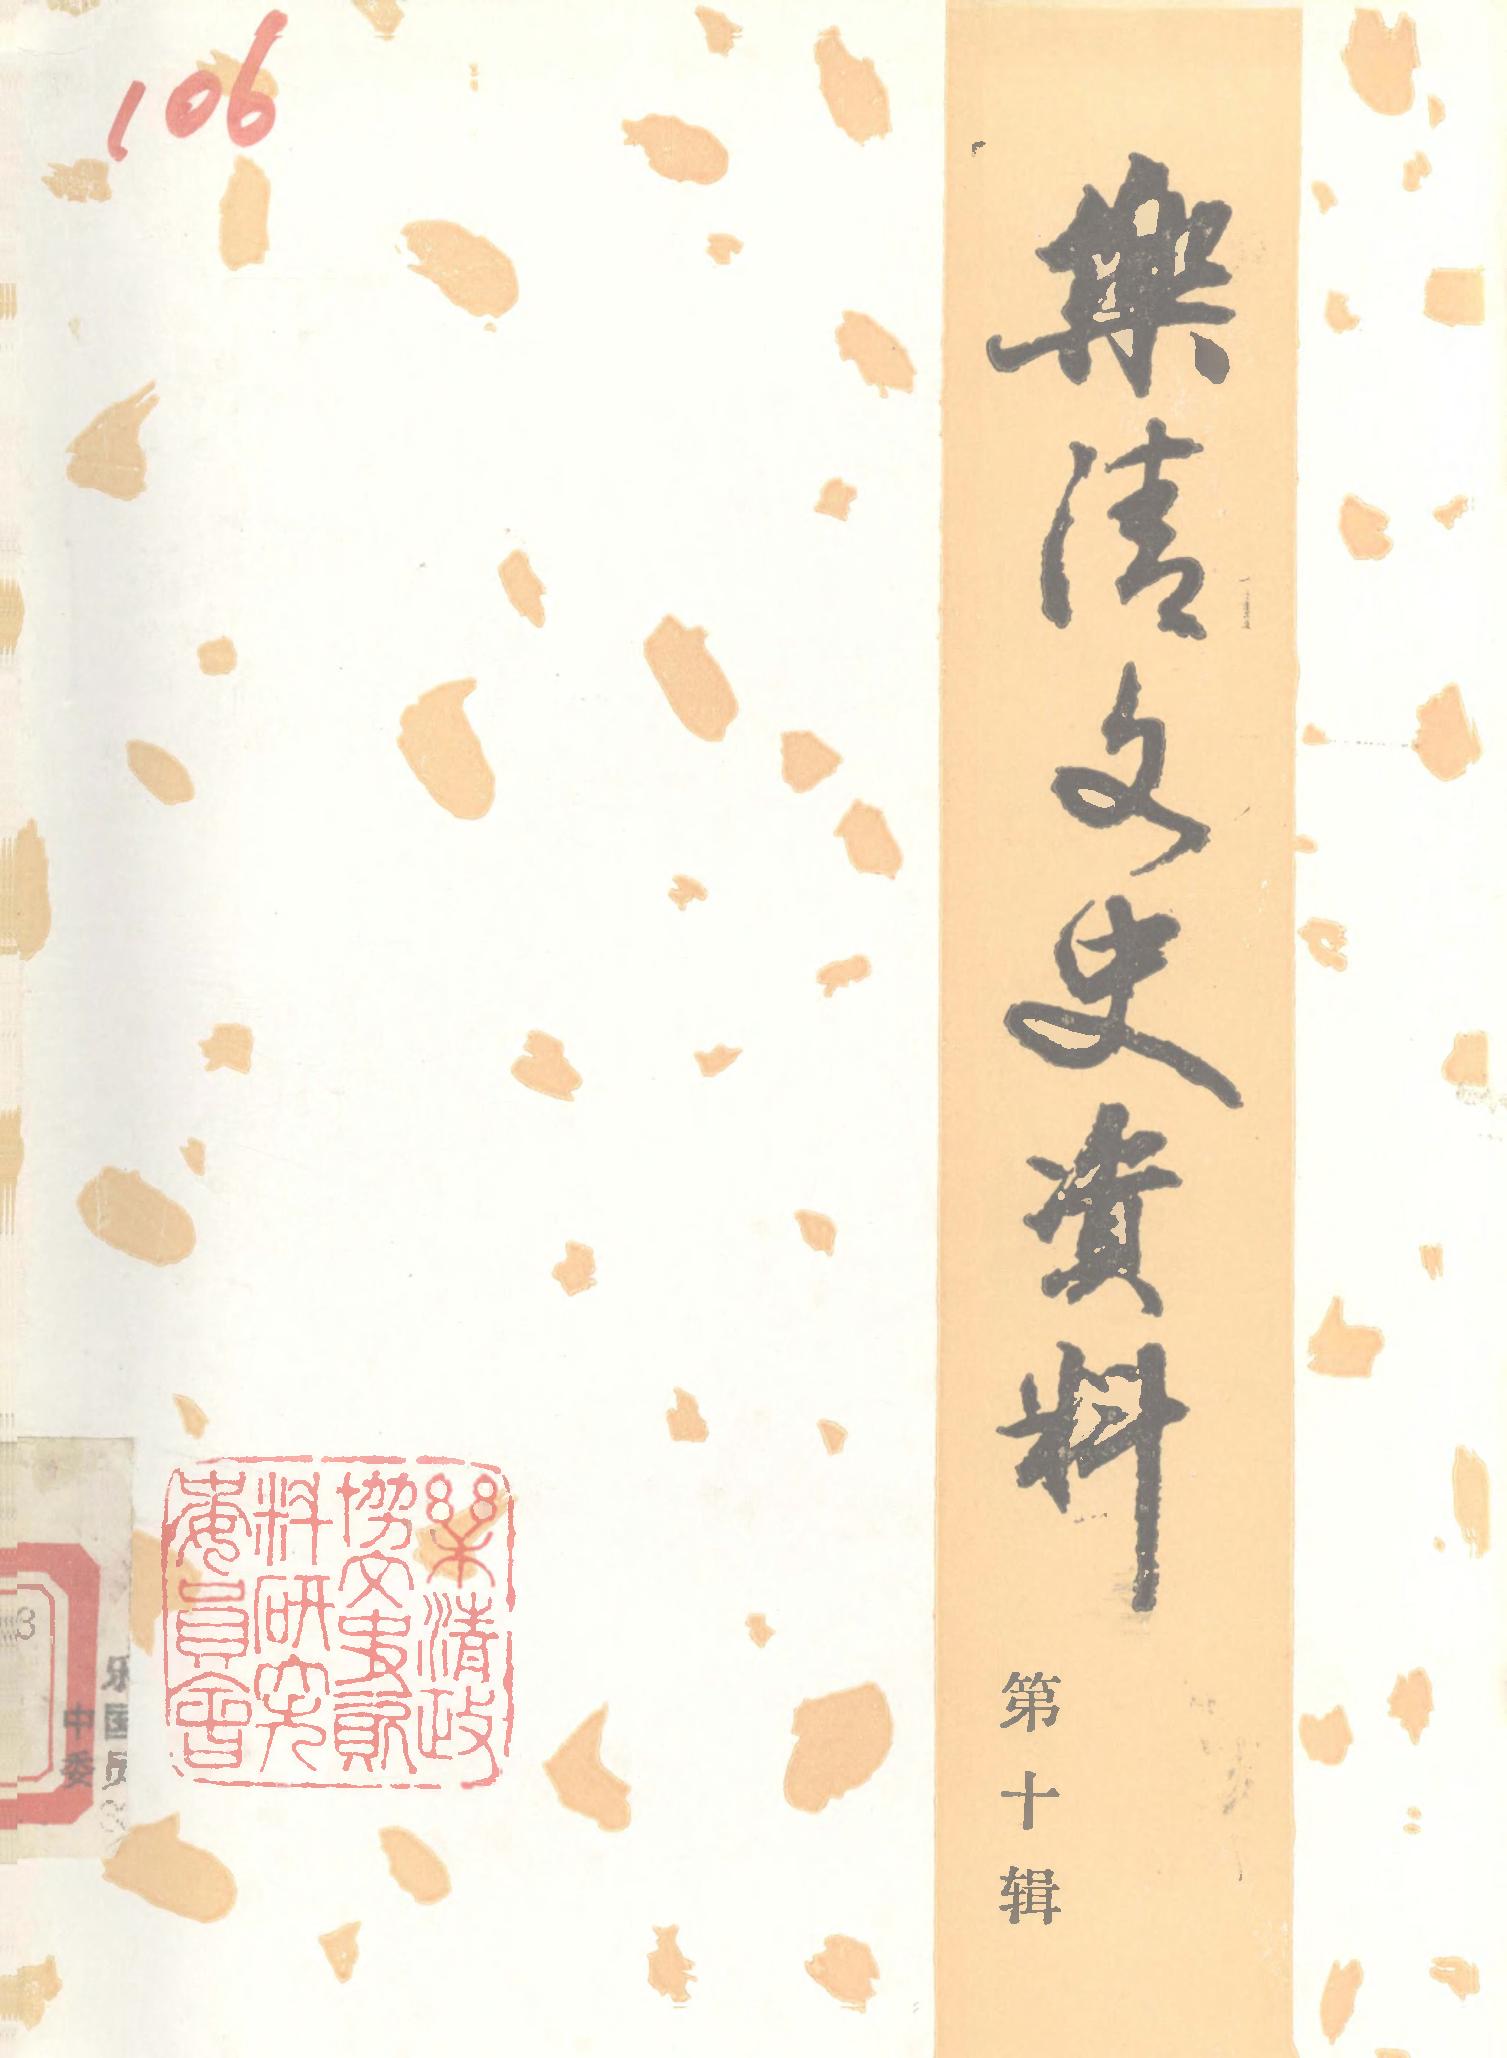 106
樂清文史資料
第十辑
樂清政
協文史資
料研究
委員會
3
中
委